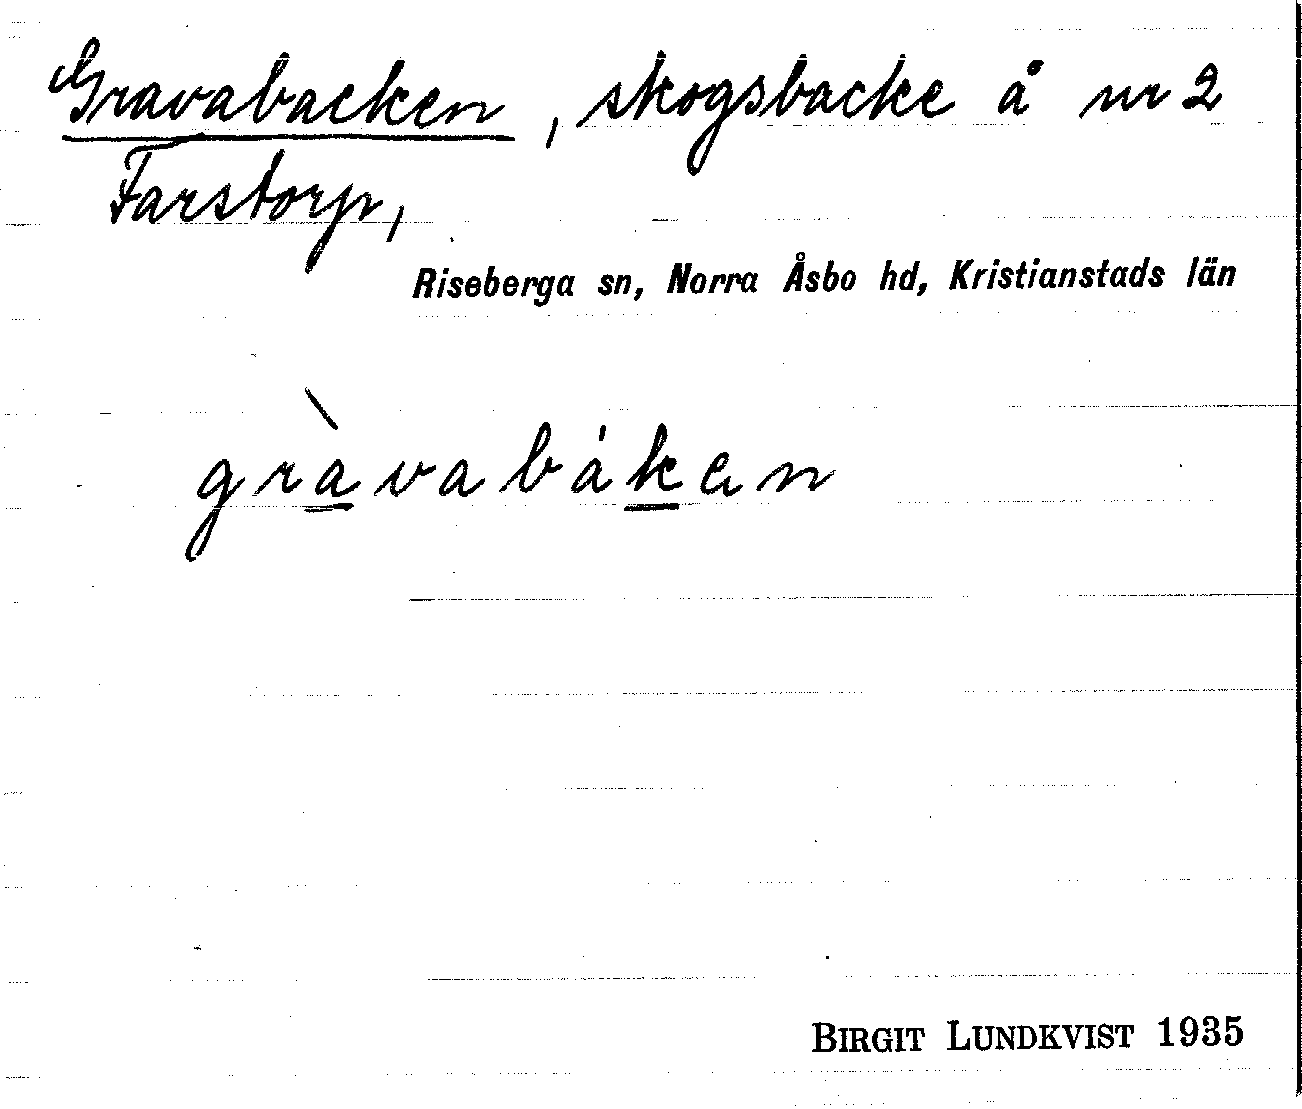 Gravabacken, skogsbacke å nr 2
Farstorp,
Riseberga sn, Norra Åsbo hd, Kristianstads län
gràvabáken
BIRGIT LUNDKVIST 1935